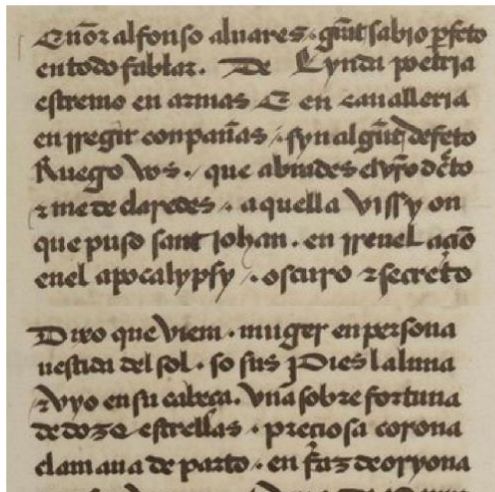 Señor alfonso aluares . gũt sabio ꝑfeto
en todo fablar . De Lynda poetria
estremo en armas E en caualleria
en rregir conpañas . syn algũt defeto
Ruego vos . que abiuades el vr̃o dc̃to
z me declaredes . aquella vissyon
que puso sant iohan . en rreuelaciõ
enel apocalypsy . oscuro z secreto
Dixo que viera . muger en persona
uestida del sol . so sus Pies la luna
z vyo en su cabeça . vna sobre fortuna
de doze estrellas . preciosa corona
clamaua de parto . en fas de oryona